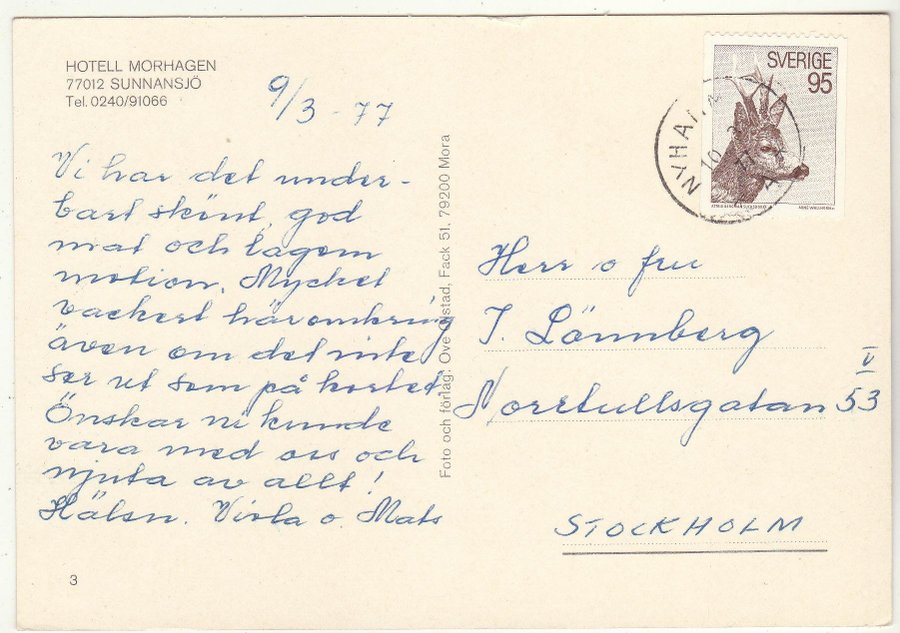 HOTELL MORHAGEN
77012 SUNNANSJÖ
Tel. 0240/91066
9/3 - 77
Vi har det under-
bart skönt, god
mat och lagom
motion. Mycket
vackert häromkring
även om det inte
ser ut som på kortet.
Önskar ni kunde
vara med oss och
njuta av allt!
Hälsn. Viola o. Mats
3
Foto och förlag: Ove Olstad, Fack 51, 79200 Mora
SVERIGE
95
NYHAMM
10
Herr o fru
J. Lönnberg
Norrtullsgatan 53
V
STOCKHOLM